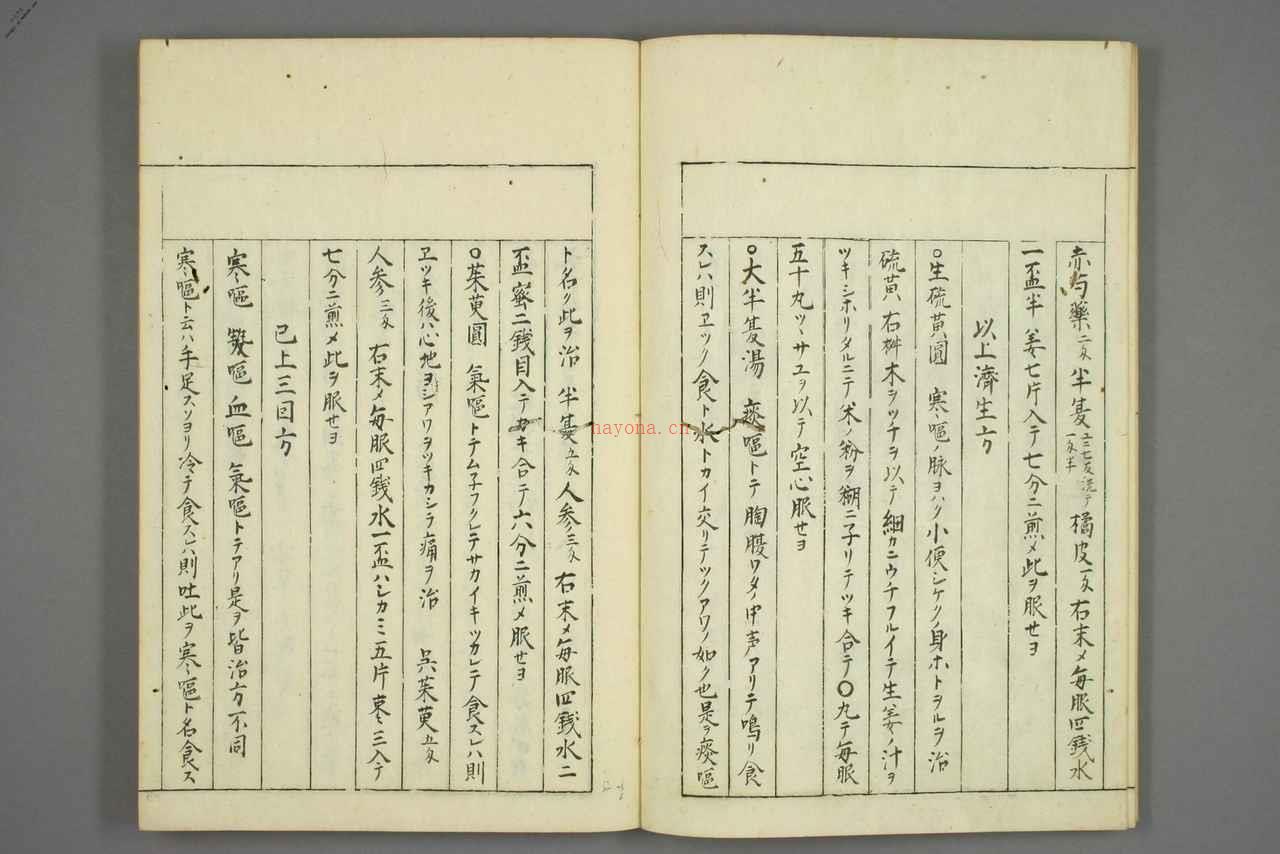 赤勺藥二文半夏五三七反洗テ一文半橘皮一文右末メ每服四銭水
一盃半姜七片入テ七分ニ煎メ此ヲ服セヨ
以上濟生方
○生硫黃圓 寒嘔ノ脉ヨハク小便シケク身ホトヲルヲ治
硫黃右桝木ヲツチヲ以テ細カニウチフルイテ生姜ノ汁ヲ
ツキシホリタルニテ米ノ粉ヲ糊ニ子リテツキ合テ〇丸テ每服
五十丸ツヽサユヲ以テ空心服セヨ
○大半夏湯 痰嘔トテ胸腹ワタノ中声アリテ鳴リ食
スレハ則ヱツク食ト水トカイ交リテツクアワノ如ク也是ヲ痰嘔
ト名ク此ヲ治 半夏五文人参三文右末メ每服四銭水二
盃蜜二銭目入テカキ合テ六分ニ煎メ服セヨ
○茱萸圓 氣嘔トテム子フクレテサカイキツカレテ食スレハ則
ヱツキ後ハ心地ヨシアワヲツキカシラ痛ヲ治 呉茱萸五文
人参三文右末メ每服四銭水一盃ハシカミ五片枣三入テ
七分ニ煎メ此ヲ服セヨ
已上三因方
寒嘔 熱嘔 血嘔 氣嘔トテアリ是ヲ皆治方不同
寒嘔ト云ハ手足スソヨリ冷テ食スレハ則吐此ヲ寒嘔ト名食ス
hayona.cn